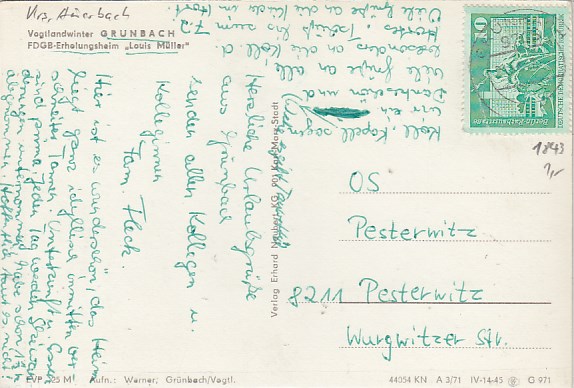 Krs. Auerbach
Vogtlandwinter GRÜNBACH
FDGB-Erholungsheim „Louis Müller"
Herzliche Urlaubsgrüße
aus Grünbach
senden allen Kollegen u.
Kolleginnen
Fam. Fleck.
Hier ist es wunderschön, das Heim
liegt ganz idyllisch inmitten ver-
schneiter Tannen. Unterkunft u. Essen
sind prima, jeden Tag werden
unternommen, habe schon
abgenommen. Hoffentlich taut es nicht
Koll. Kapell sagen
wir ein
Dankeschön und
viele Grüße an alle
besonders an die Koll. d.
72
Viele Grüße an die Kinder im Hort.
Verlag Erhard Neubert KG, 901 Karl-Marx-Stadt
10
DEUTSCHE DEMOKRATISCHE REPUBLIK
Berlin · Rathausstraße
1843
1,-
OS
Pesterwitz
8211 Pesterwitz
Wurgwitzer Str.
EVP -,25 M
Aufn.: Werner, Grünbach/Vogtl.
44054 KN A 3/71 IV-14-45 G 971